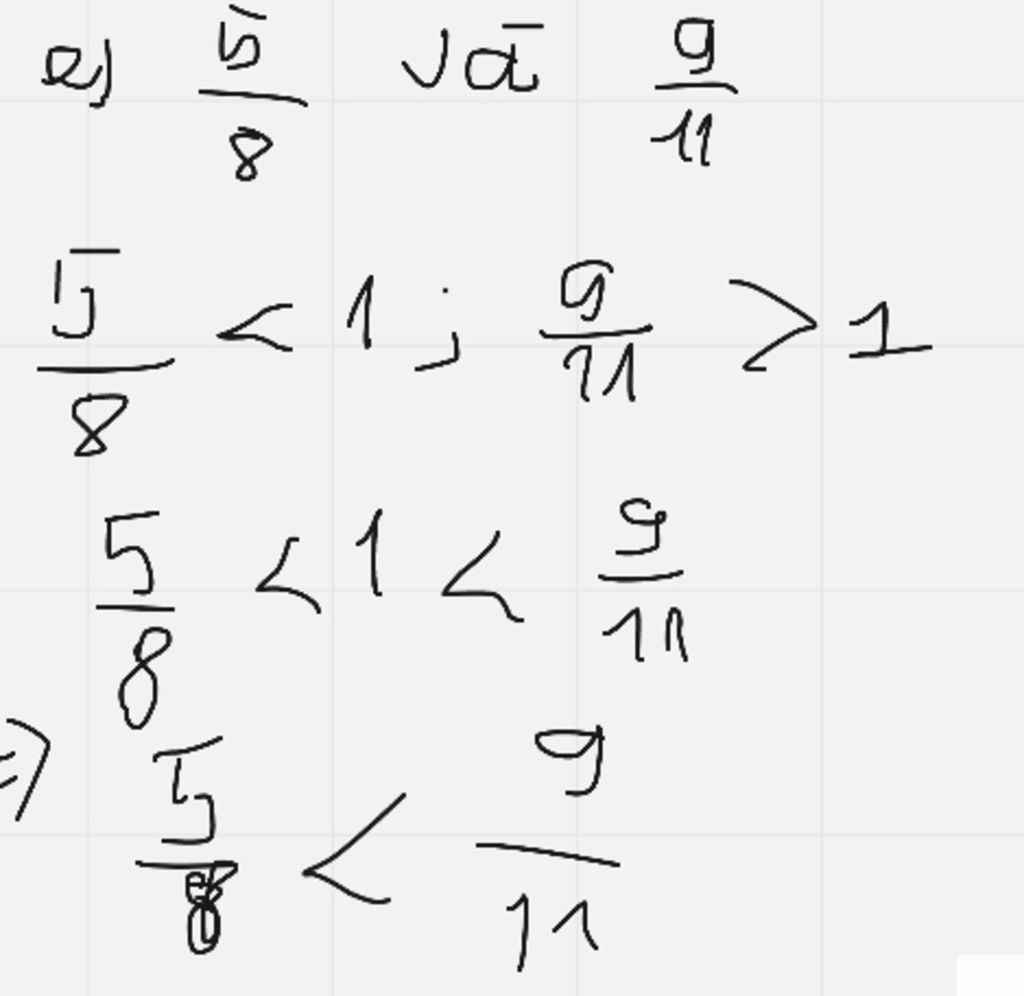 e) 5/8 và 9/11
5/8 < 1 ; 9/11 > 1
5/8 < 1 < 9/11
=> 5/8 < 9/11